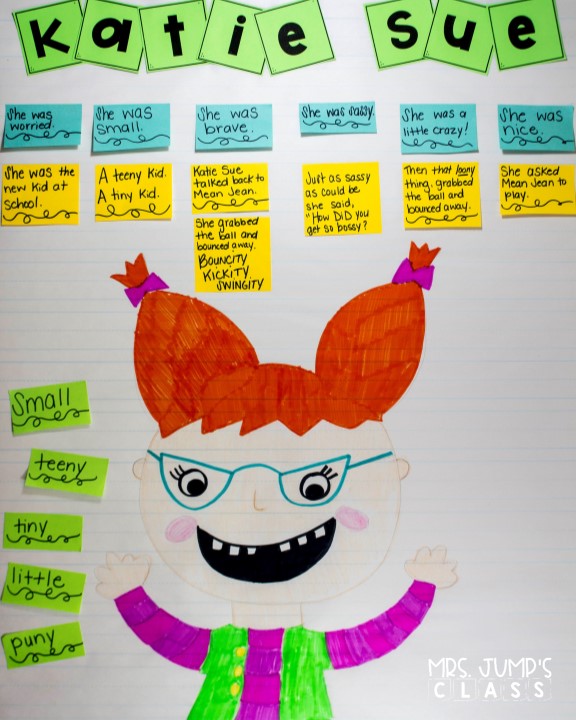 Katie Sue
She was
worried.
She was
small.
She was
brave.
She was sassy.
She was a
little crazy!
She was
nice.
She was the
new kid at
school.
A teeny kid.
A tiny kid.
Katie Sue
talked back to
Mean Jean.
She grabbed
the ball and
bounced away.
BOUNCITY
KICKITY
SWINGITY
Just as sassy
as could be
she said,
"How DID you
get so bossy?
Then that loony
thing. grabbed
the ball and
bounced away.
She asked
Mean Jean to
play.
Small
teeny
tiny
little
puny
MRS. JUMP'S
CLASS